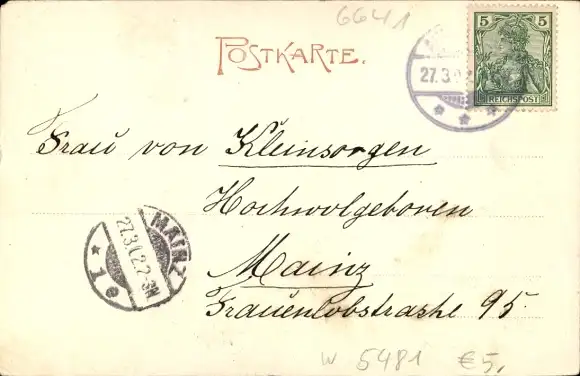 6641
POSTKARTE.
5 5
REICHSPOST
27.3.
Frau von Kleinsorgen
Hochwolgeboren
Mainz
Frauenlobstrashe 95
MAINZ
27.3.02.2-3N
* 1 e
W 5481 €5.